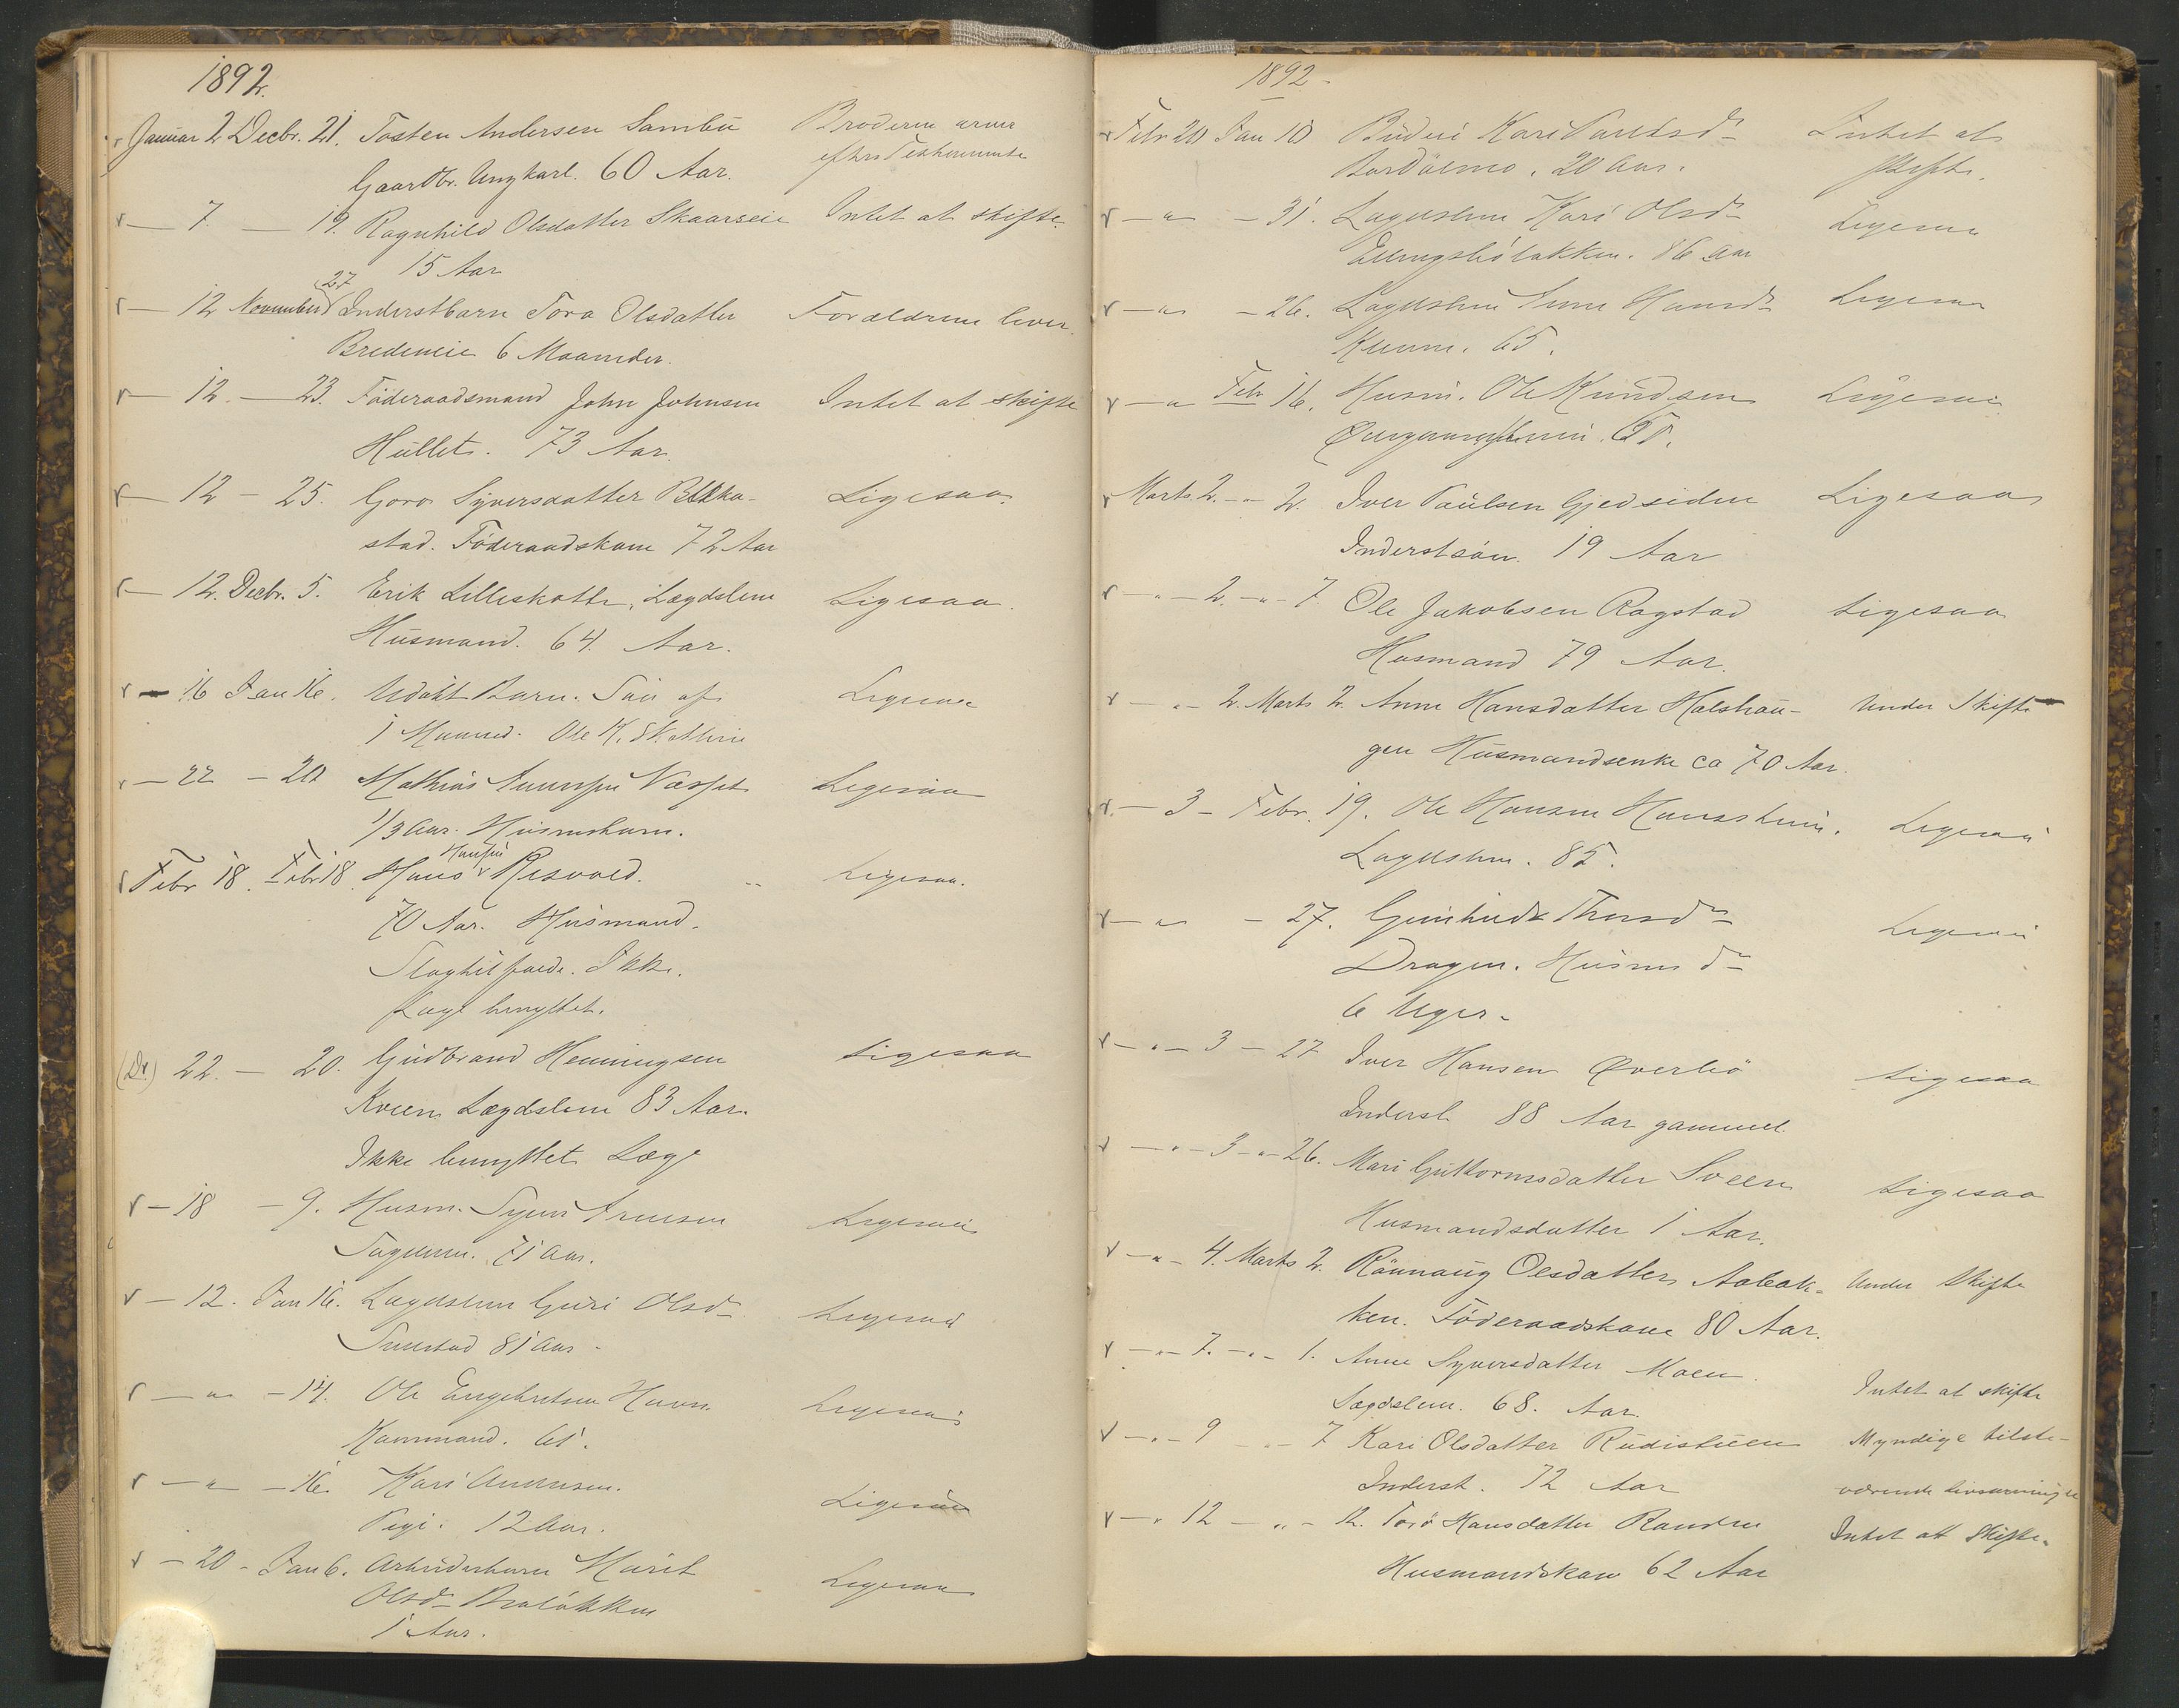 1892.
Januar 2 Decbr. 21. Tosten Andersen Sambu Broderen arver
Gaardbr. Ungkarl. 60 Aar. efter Testamente
— 7. — 19. Ragnhild Olsdatter Skaarseie Intet at skifte.
15 Aar
— 12 November 27 Inderstbarn Tora Olsdatter Forældrene lever.
Bredeneie 6 Maaneder.
— 12. — 23. Föderaadsmand John Johnsen Intet at skifte
Hullet. 73 Aar.
— 12 — 25. Goro Syversdatter Bekka- Ligesaa.
stad. Föderaadskone 72 Aar
— 12. Decbr. 5. Erik Lilleskotte, Lægdslem Ligesaa.
Husmand. 64. Aar.
— 16 Jan 16. Udöbt Barn. Sön af Ligesaa
1 Maaned. Ole K.
— 22 — 20 Mathias Ligesaa
1/3 Aar. Husmbarn.
Febr 18. Febr 18. Hans Hansen Risvold. " Ligesaa.
70 Aar. Husmand.
Ikke.
Læge benyttet.
(Dr.) 22. — 20. Gudbrand Henningsen Ligesaa
Kveen Lægdslem 83 Aar.
Ikke benyttet Læge
— 18 — 9. Husm. Syver Iversen Ligesaa
71 Aar.
— 12. Jan 16. Lægdslem Guri Olsdr Ligesaa
81 Aar.
— " — 14. Ole Engebretsen Ligesaa
61.
— " — 16. Kari Andersen. Ligesaa
Pige. 12 Aar.
— 20 — Jan 6. Arbeiderbarn Marit Ligesaa
Olsdr Bratökken
1 Aar.
1892 —
Febr 20 Jan 10 Budeie Kari Paulsdr Intet at
20 Aar. skifte.
— " — 31. Lægdslem Kari Olsdr Ligesaa
86 Aar
— " — 26. Lægdslem Anne Hansdr Ligesaa
65.
— " Febr 16. Husm. Ole Knudsen Ligesaa
Marts 2. — " 2. Iver Paulsen Gjedsiden Ligesaa
Inderstsön. 19 Aar
— " — 2. — " — 7. Ole Jakobsen Ragstad Ligesaa
Husmand 79 Aar.
— " — 2. Marts 2. Anne Hansdatter Halshau- Under Skifte
gen Husmandsenke ca 70 Aar.
— 3 — Febr. 19. Ole Hansen Ligesaa
Lægdslem. 85.
— " — 27. Gunhild Thorsdr Ligesaa
Dragen. Husmdr
6 Uger.
— " — 3 — 27 Iver Hansen Øverliö Ligesaa
Inderst 88 Aar gammel.
— " — 3 — " — 26. Mari Guttormsdatter Sveen Ligesaa
Husmandsdatter 1 Aar.
— " — 4. Marts 2. Rönnaug Olsdatter Aabak- Under Skifte
ken. Föderaadskone 80 Aar.
— " — 7. — " — 1. Anne Syversdatter Moen. Intet at skifte
Lægdslem. 68. Aar.
— " — 9 — " — 7 Kari Olsdatter Rudistuen Myndige tilste-
Inderst. 72 Aar værende Livsarvinger
— " 12 — " — 12. Torö Hansdatter Randen Intet at Skifte.
Husmandskone 62 Aar